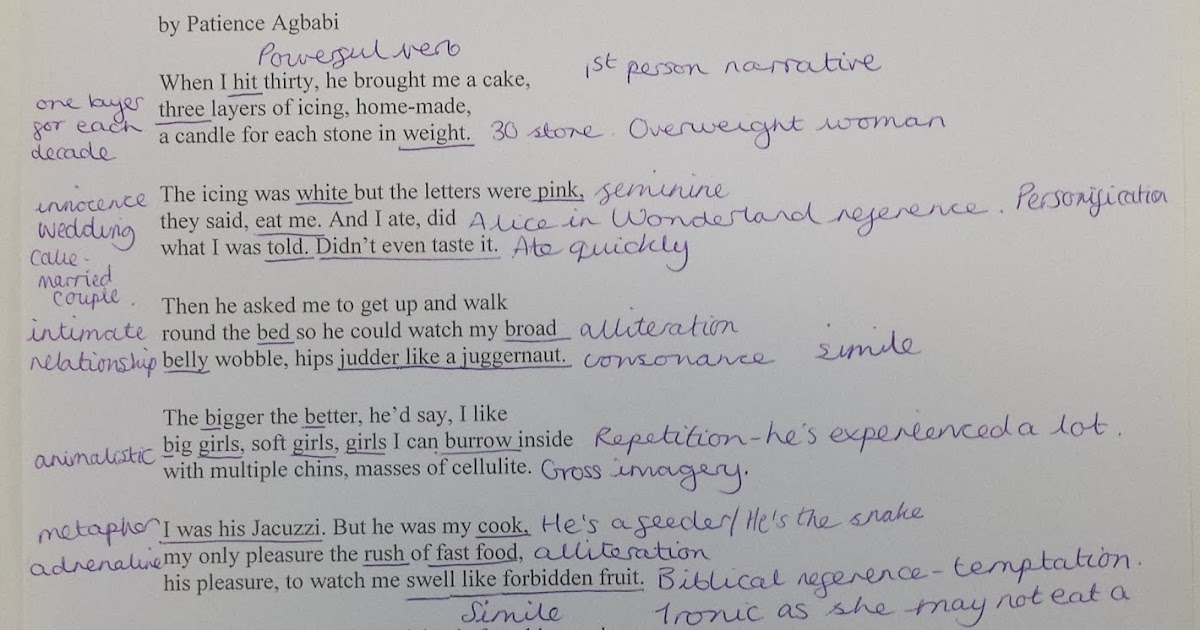 by Patience Agbabi
Powerful verb
When I hit thirty, he brought me a cake,
1st person narrative
one layer for each decade
three layers of icing, home-made,
a candle for each stone in weight. 30 stone. Overweight woman
innocence
The icing was white but the letters were pink, feminine
Personification
they said, eat me. And I ate, did Alice in Wonderland reference.
wedding cake - married couple.
what I was told. Didn't even taste it. Ate quickly
Then he asked me to get up and walk
intimate relationship
round the bed so he could watch my broad alliteration
belly wobble, hips judder like a juggernaut. consonance simile
The bigger the better, he'd say, I like
big girls, soft girls, girls I can burrow inside Repetition - he's experienced a lot.
animalistic
with multiple chins, masses of cellulite. Gross imagery.
metaphor I was his Jacuzzi. But he was my cook, He's a feeder/He's the snake
adrenaline my only pleasure the rush of fast food, alliteration
his pleasure, to watch me swell like forbidden fruit. Biblical reference - temptation.
Simile Ironic as she may not eat a